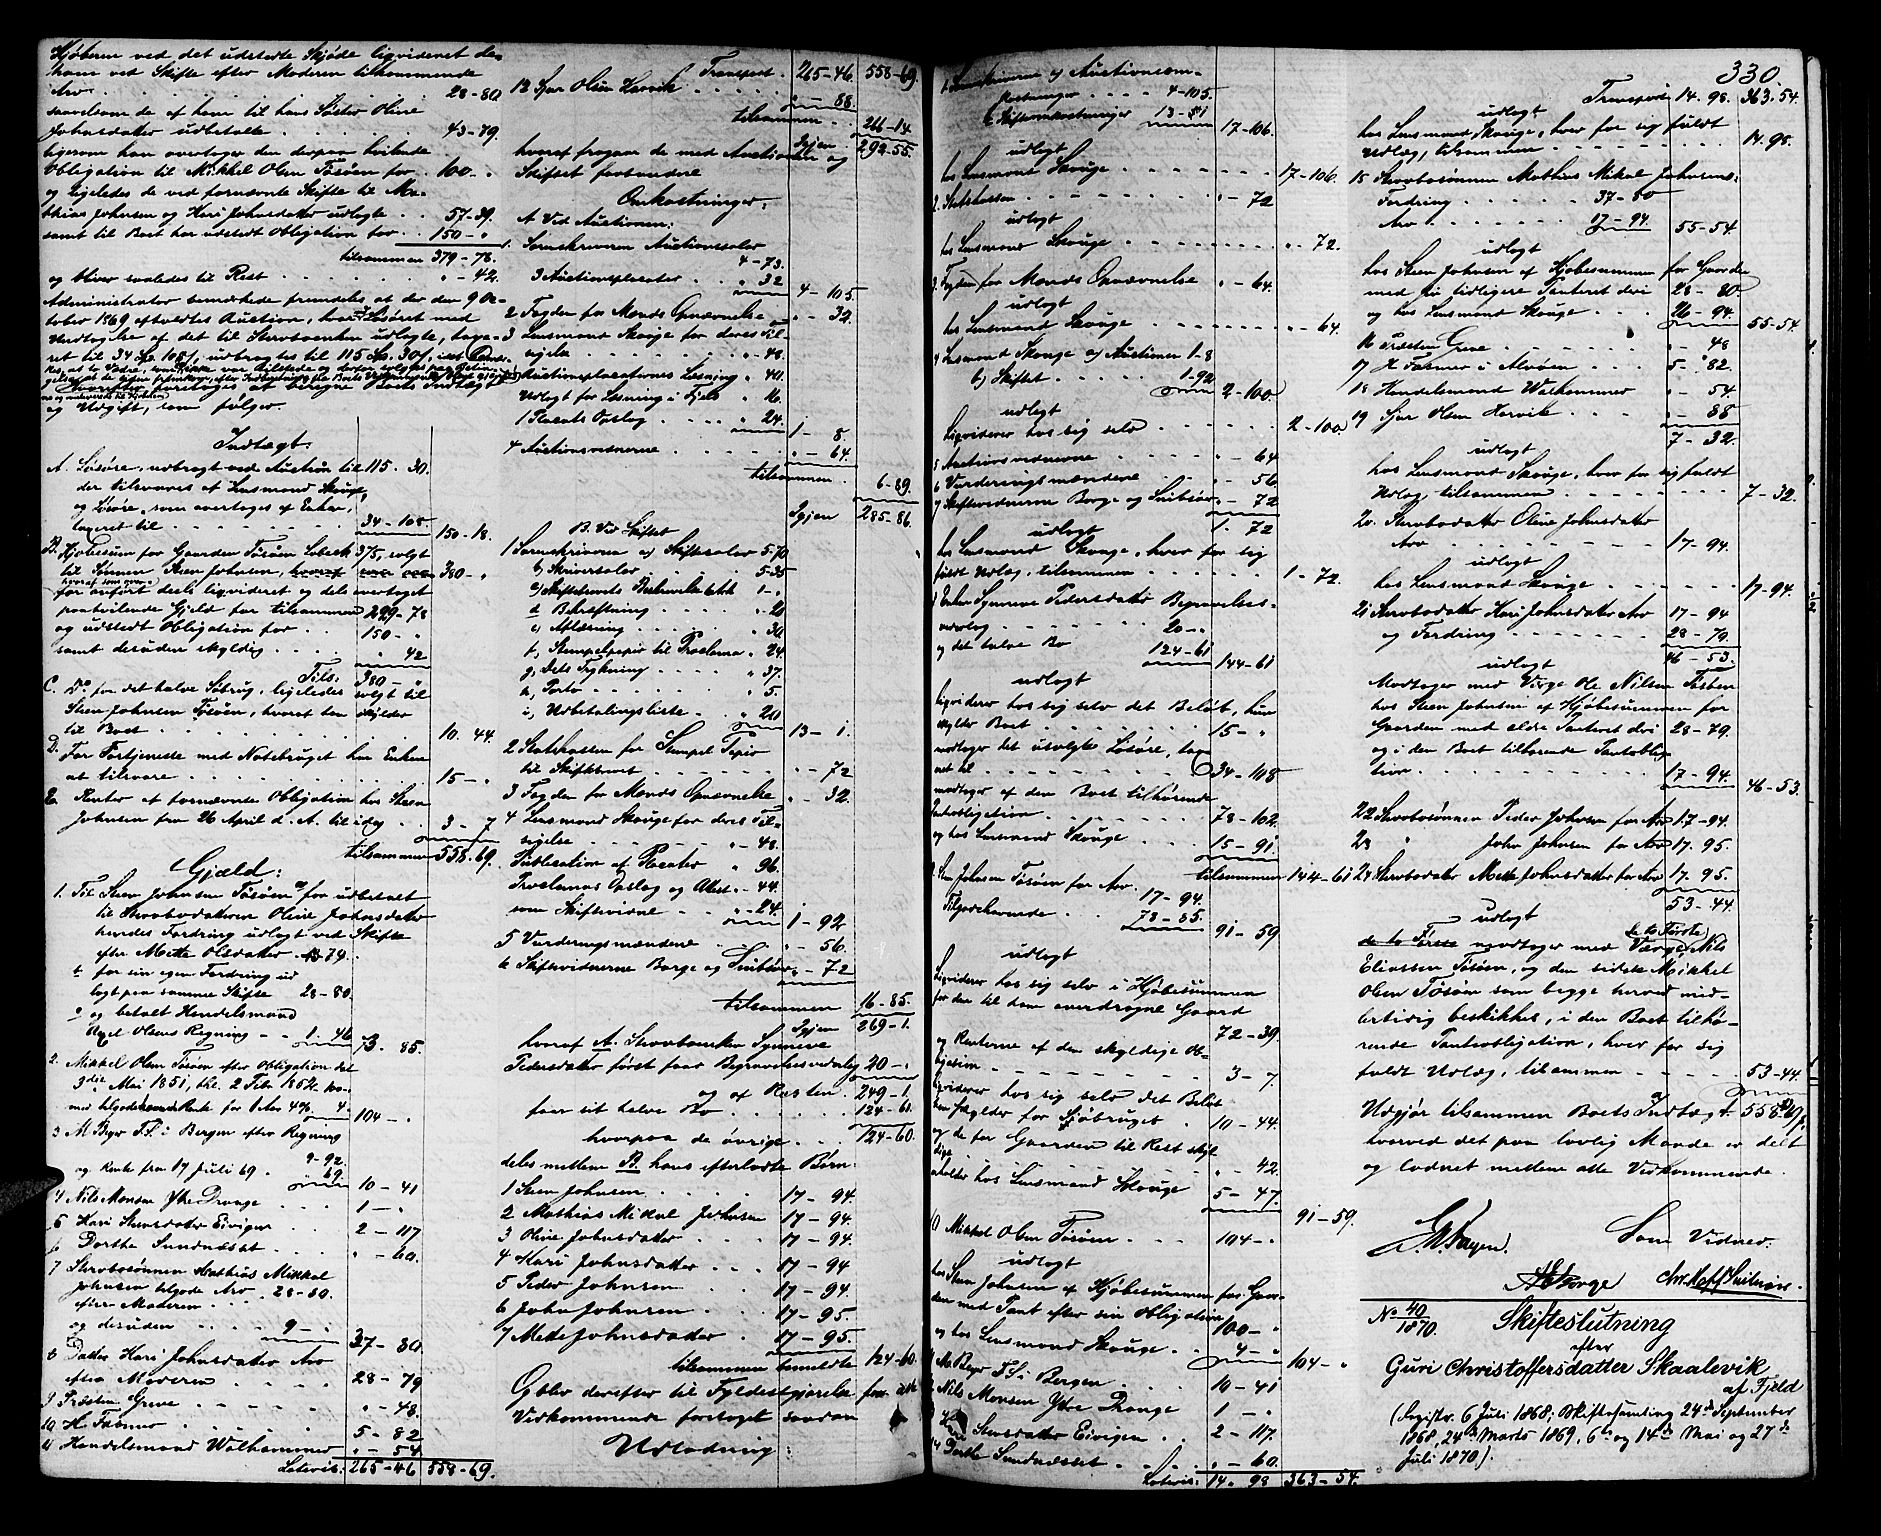 Kjøberen ved det udstedte Skjøde liqvideret den
ham ved Skifte efter Moderen tilkommende
Arv . . . 28-80.
saavelsom de af ham til hans Søster Oline
Johnsdatter udbetalte . . 43-79.
ligesom han overtager den derpaa hvilende
Obligation til Mikkel Olsen Tösöen for . . 100-"
og ligeledes de ved fornævnte Skifte til Ma-
thias Johnsen og Kari Johnsdatter udlagte . . 57-39.
samt til Boet har udstedt Obligation for . . 150-"
tilsammen 379-78.
og bliver saaledes til Rest . . . "-42.
Administrator bemærkede fremdeles at der den 9 Oc-
tober 1869 afholdtes Auction, hvor Løsøret med
Undtagelse af det til Stervboenken udlagte, tage-
ret til 34 Spd. 108 s, udbragtes til 115 Spd. 30 s,
og Udgift, som følger.
Indtægt.
A. Løsøre, udbragt ved Auction til 115. 30.
der tilsvares af Lensmand Skouge,
og Løsøre, som overtages af Enken,
taxeret til . . . 34-108. 150-18.
B. Kjøbesum for Gaarden Tösöen Løbe No 375, solgt
til Sönnen Steen Johnsen, 380-"
hvoraf som oven-
for anført deels liqvideret og dels overtaget
paahvilende Gjeld for tilsammen 229-78
og udstedt Obligation for . . 150-"
samt desuden skyldig . . . " 42
Tils. 380-"
C. Do for det halve Söbrug, ligeledes solgt til
Steen Johnsen Tösöen, hvoret han skylder
til Boet . . . 10. 44.
D. For Fortjeneste med Notebruget har Enken
at tilsvare . . . 15-"
E. Renter af fornævnte Obligation hos Steen
Johnsen fra 26 April d. A. til idag . . 3-7
tilsammen 558-69.
Gjæld:
1. Til Steen Johnsen Tösöen a/ for udbetalt
til Stervbodatteren Oline Johnsdatter
hendes Fordring udlagt ved Skifte
efter Mette Olsdatter 43-79.
b/ for sin egen Fordring ud
lagt paa samme Skifte 28-80.
c/ og betalt Handelsmand
Axel Olsens Regning - - 1. 46 73. 85.
2. Mikkel Olsen Tösöen efter Obligation dat
3die Mai 1851, thl. 2 Febr. 1852 100-
med tilgodehavende Rente for 1 Aar 4% 4. 104-"
3 M. Beyer F.S. i Bergen efter Regning
9-92.
og Rente fra 17 Juli 69 . " 69. 10-41
4 Nils Monsen Ytre Dronge . . . 1-"
5 Kari Stensdatter Eivigen . . 2-117
6 Dorthe Sundnæsset . . . "-60.
7 Stervbosönnen Mathias Mikkal
Johnsens tilgode Arv . 28-80.
efter Moderen . . .
og desuden . . . 9-" 37-80
8 Datter Kari Johnsdatter Arv
efter Moderen . . . 28-79
9 Præsten Greve . . . "-48.
10 H. Fasmer . . . 5-82
11 Handelsmand Walhammer "-54
Lateris: 265-46 558-69.
Transport . 265-46. 558-69.
12 Sjur Olsen Hervik . . . "-88.
tilsammen . 266-14
Igjen . 292-55.
hvoraf fragaar de med Auctionen og
Skiftet forbundne
Omkostninger:
A. Ved Auctionen:
1. Sorenskriveren Auctionssalær
4-73.
3 Auctionsplacater . " 32 4-105.
2 Fogden for Mænds Opnævnelse "-32.
3 Lensmand Skouge for deres Til-
sigelse . . . "-48.
Auctionsplacaternes Læsning " 40.
Udlagt for Læsning i Fjeld " 16.
1 Placats Opslag . . . " 24. 1-8.
4 Auctionsvidnerne . . . "-64.
tilsammen . 6-89.
Igjen 285-86.
B. Ved Skiftet
1 Sorenskriveren a/ Skiftesalær 5-70
b/ Skriversalær . . . 5-35
c/ Skiftebrevets Beskrivelse 6 Ark 1-"
d Bekræftning . . . "-20
e/ Aflæsning . . . " 30
f, Stempelpapir til Proclama " 24.
g, Dets Trykning . . . " 37.
h, Porto . . . " 5.
i, Udbetalingsliste . . " 20 13-1.
2 Statskassen for Stempel Papir
til Skiftebrevet . . . "-72
3 Fogden for Mænds Opnævnelse "-32.
4 Lensmand Skouge for deres Til-
sigelse . . . "-48.
Publication af Placater " 96.
Proclamas Opslag og Attest "-44.
som Skiftevidne . . "-24. 1-92
5 Vurderingsmændene . . "-56.
6 Skiftevidnerne Borge og Snitsøe "-72
tilsammen 16-85.
Igjen 269-1.
hvoraf A. Stervboenken Synneve
Pedersdatter først faar Begravelsesudlæg 20-"
og af Resten . 249-1.
faar sit halve Bo . . . 124-61.
hvorpaa de øvrige . . . 124-60.
deles mellem B. hans efterladte Børn:
1 Steen Johnsen . . . 17-94.
2 Mathias Mikal Johnsen 17-94.
3 Oline Johnsdatter . . 17-94.
4 Kari Johnsdatter . . . 17-94.
5 Peder Johnsen . . . 17-94.
6 John Johnsen . . . 17-95.
7 Mette Johnsdatter . . 17-95.
tilsammen anmeldte 124-60.
Og blev derefter til Fyldestgjørelse for alle
Vedkommende foretaget saadan
Udlodning:
1. Sorenskriveren a/ Auctionsom-
kostninger . . . 4-105.
b Skifteomkostninger 13-1 17-106.
udlagt
hos Lensmand Skouge . . . 17-106.
2. Statskassen . . . "-72
udlagt
hos Lensmand Skouge . . . " 72.
3. Fogden for Mænds Opnævnelse "-64.
udlagt
hos Lensmand Skouge . . . "-64.
4 Lensmand Skouge a/ Auctionen 1-8
b/ Skiftet . . . 1-92 2-100.
udlagt
Liqviderer hos sig selv . . . 2-100.
5 Auctionsvidnerne . . . "-64
6 Vurderingsmændene . . . "-56
7 Skiftevidnerne Borge og Snitsøe "-72
1. 72
udlagt
hos Lensmand Skouge, hver for sig
fuldt Udlæg, tilsammen . . . 1-72.
8 Enken Synneve Pedersdatter Begravelses-
udlæg . . . 20-"
og det halve Bo 124-61 144-61
udlagt
Liqviderer hos sig selv det Beløb, hun
skylder Boet . . . 15-"
modtager det usolgte Løsøre, taxe-
ret til . . . 34-108
modtager af den Boet tilhørende
Panteobligation . . . 78-102.
og hos Lensmand Skouge . . 15-91.
tilsammen 144-61
9. Sten Johnsen Tösöen for Arv
17-94.
Tilgodehavende . . 73-85. 91-59
udlagt
Liqviderer hos sig selv i Kjøbesummen
for den til ham overdragne Gaard
72-39.
og Renterne af den skyldige Ob-
ligation . . . 3-7.
Liqviderer hos sig selv det Beløb
han skylder for Söbruget . 10-44.
og de for Gaarden til Rest skyl-
dige . . . "-42.
erholder hos Lensmand Skouge . . 5-47.
91-59.
10 Mikkel Olsen Tösöen . . . 104-"
udlagt
hos Steen Johnsen af Kjøbesummen for Gaar-
den med Pant efter sin Obligation
100-"
og hos Lensmand Skouge . . 4-" 104-"
11 M. Beyer F.S. i Bergen . . . 10-41
12 Nils Monsen Ytre Dronge 1-"
13 Kari Stensdatter Eivigen . . 2-117.
14 Dorthe Sundnæsset . . . "-60.
Lateris: 14. 98 363-54.
330.
Transport 14.98. 363.54.
udlagt
hos Lensmand Skouge, hver for sig fuldt
Udlæg, tilsammen . . . 14.98.
15 Stervbosønnen Mathias Mikal Johnsens
Fordring . . . 37-80
Arv . . . 17-94. 55-54.
udlagt
hos Steen Johnsen af Kjøbesummen for Gaarden
med sin tidligere Panteret deri 28-80.
og hos Lensmand Skouge . . . 26-94.
55-54.
16 Præsten Greve . . . "-48
17 H Fasmer i Alvøen . . . 5-"82.
18 Handelsmand Walhammer "-54.
19 Sjur Olsen Hervik . . . "-88
7-32.
udlagt
hos Lensmand Skouge, hver for sig fuldt
Udlæg, tilsammen . . . 7-32.
20. Stervbodatter Oline Johnsdatter
Arv . . . 17-94.
udlagt
hos Lensmand Skouge . . . 17-94.
21 Stervbodatter Kari Johnsdatter Arv 17-94
og Fordring . . . 28-79.
46-53.
udlagt
Modtager med Værge Ole Nilsen Tösöen
hos Steen Johnsen af Kjøbesummen for
Gaarden med ældre Panteret deri 28-79.
og i den Boet tilhørende Panteoblig
tion . . . 17-94. 46-53.
22 Stervbosønnen Peder Johnsen for Arv 17-94.
23 " John Johnsen for Arv 17.95.
24 Stervbodatter Mette Johnsdatter for Arv 17.95
53-44.
udlagt
de to Første modtager med Værge Nils
(de to Første)
Eliassen Tösöen, og den sidste Mikkel
Olsen Tösöen som begge herved mid-
lertidig beskikkes, i den Boet tilhø-
rende Panteobligation, hver for sig
fuldt Udlæg, tilsammen . . . 53-44.
Udgjør tilsammen Boets Indtægt 558 69 s.
hvorved det paa lovlig Maade er delt
og lodnet mellem alle Vedkommende.
Som Vidner:
A Borge Chr. Snitsøe.
No 40/1870. Skifteslutning
efter
Guri Christoffersdatter Skaalevik
af Fjeld
(Registr. 6 Juli 1868; Skiftesamling 24de September
1868, 24de Marts 1869, 6te og 14de Mai og 27de
Juli 1870).